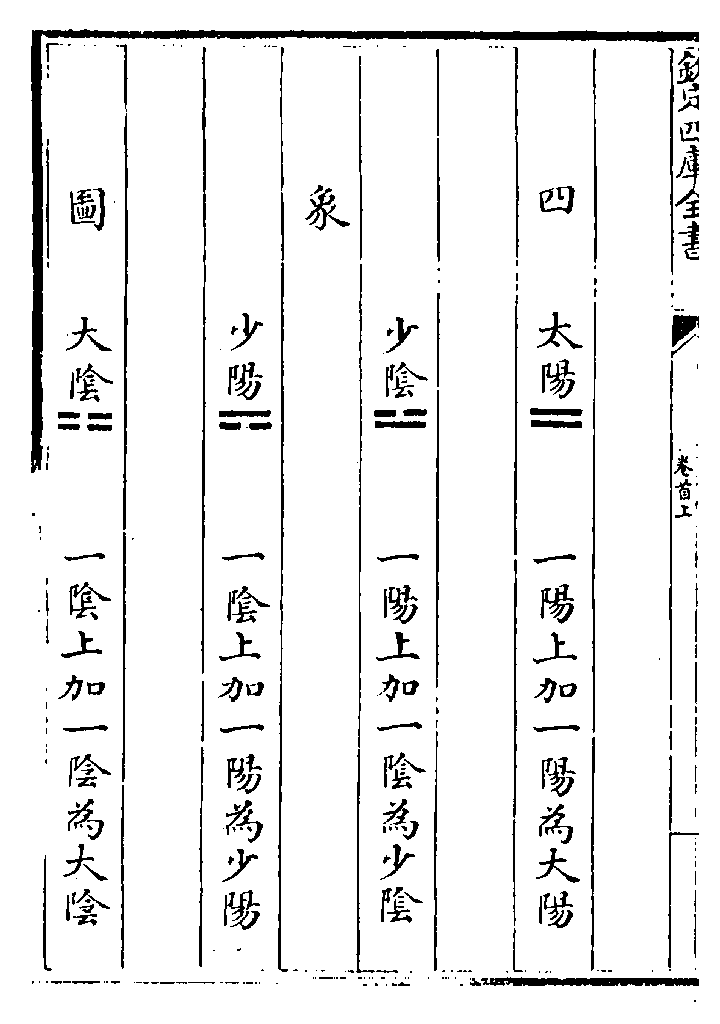 欽定四庫全書
卷首上
四 太陽⚌ 一陽上加一陽為大陽
少陰⚍ 一陽上加一陰為少陰
象
少陽⚎ 一陰上加一陽為少陽
圖 大陰⚏ 一陰上加一陰為大陰